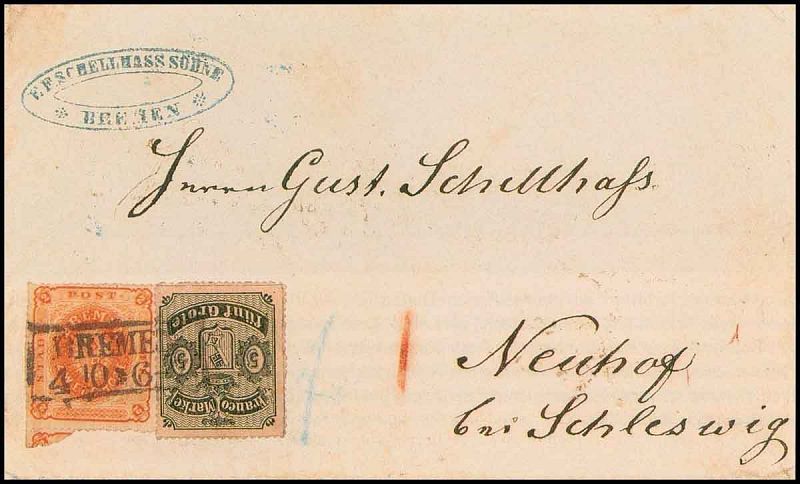 E. F. SCHELLHASS SÖHNE
BREMEN
Herrn Gust. Schellhass
POST
BREMEN
4 10 * 6
5 5
Fünf Grote
Franco Marke
Neuhof
bei Schleswig